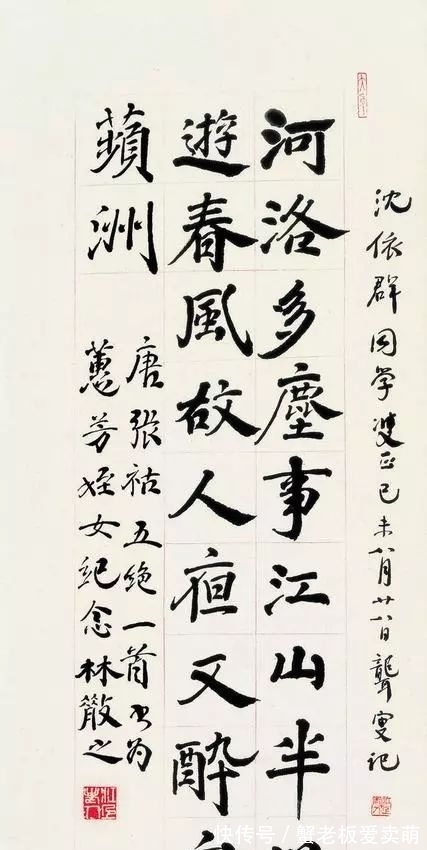 沈依群同学正己未八月廿八日聾叟记
河洛多塵事江山半
遊春風故人夜又醉
蘋洲
唐張祜五绝一首书为
蕙芳姪女紀念林散之
快传号/蟹老板爱卖萌